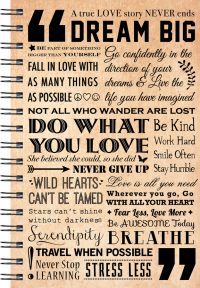 A true LOVE story NEVER ends
DREAM BIG
BE PART OF SOMETHING
BIGGER THAN YOURSELF
FALL IN LOVE WITH
AS MANY THINGS
AS POSSIBLE
Go confidently in the
direction of your
dreams & Live the
life you have imagined
NOT ALL WHO WANDER ARE LOST
DO WHAT
YOU LOVE
Be Kind
Work Hard
Smile Often
Stay Humble
She believed she could, so she did
NEVER GIVE UP
WILD HEARTS
CAN'T BE TAMED
Stars can't shine
without darkness
Serendipity
Love is all you need
Wherever you go, GO
WITH ALL YOUR HEART
Fear Less, Love More
Be AWESOME Today
BREATHE
TRAVEL WHEN POSSIBLE
Never Stop
LEARNING
STRESS LESS